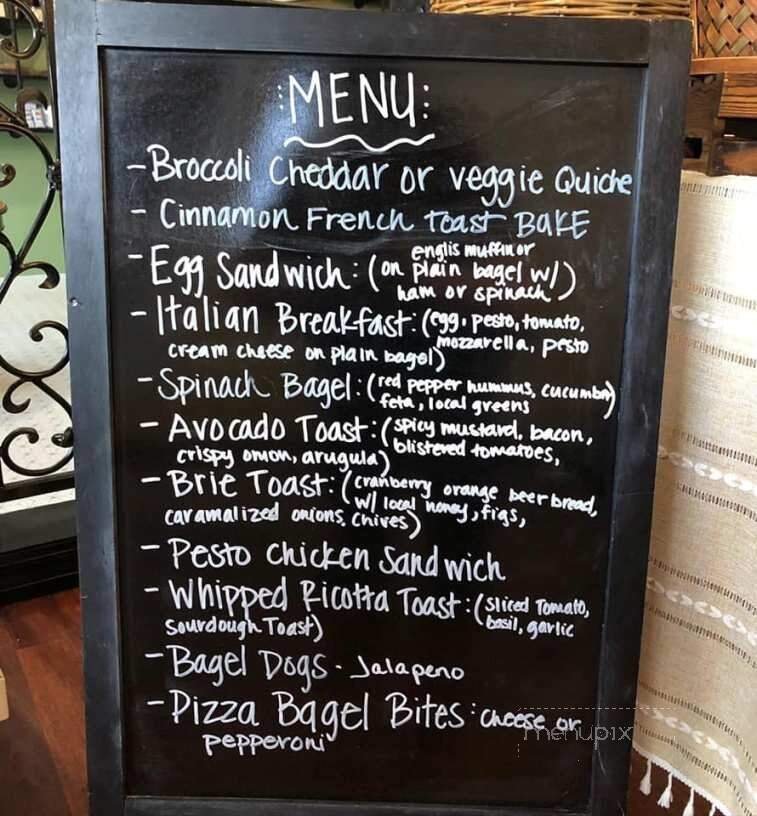 MENU:
- Broccoli Cheddar or veggie Quiche
- Cinnamon French Toast BAKE
- Egg Sandwich: (on plain bagel w/
englis muffin or
ham or spinach)
- Italian Breakfast: (egg, pesto, tomato,
mozzarella, pesto
cream cheese on plain bagel)
- Spinach Bagel: (red pepper hummus, cucumbr)
feta, local greens
- Avocado Toast: (spicy mustard, bacon,
blistered tomatoes,
crispy onion, arugula)
- Brie Toast: (cranberry orange beer bread,
w/ local honey, figs,
caramalized onions, chives)
- Pesto Chicken Sandwich
- Whipped Ricotta Toast: (sliced Tomato,
basil, garlic
sourdough Toast)
- Bagel Dogs - Jalapeno
- Pizza Bagel Bites: cheese or
pepperoni
menupix